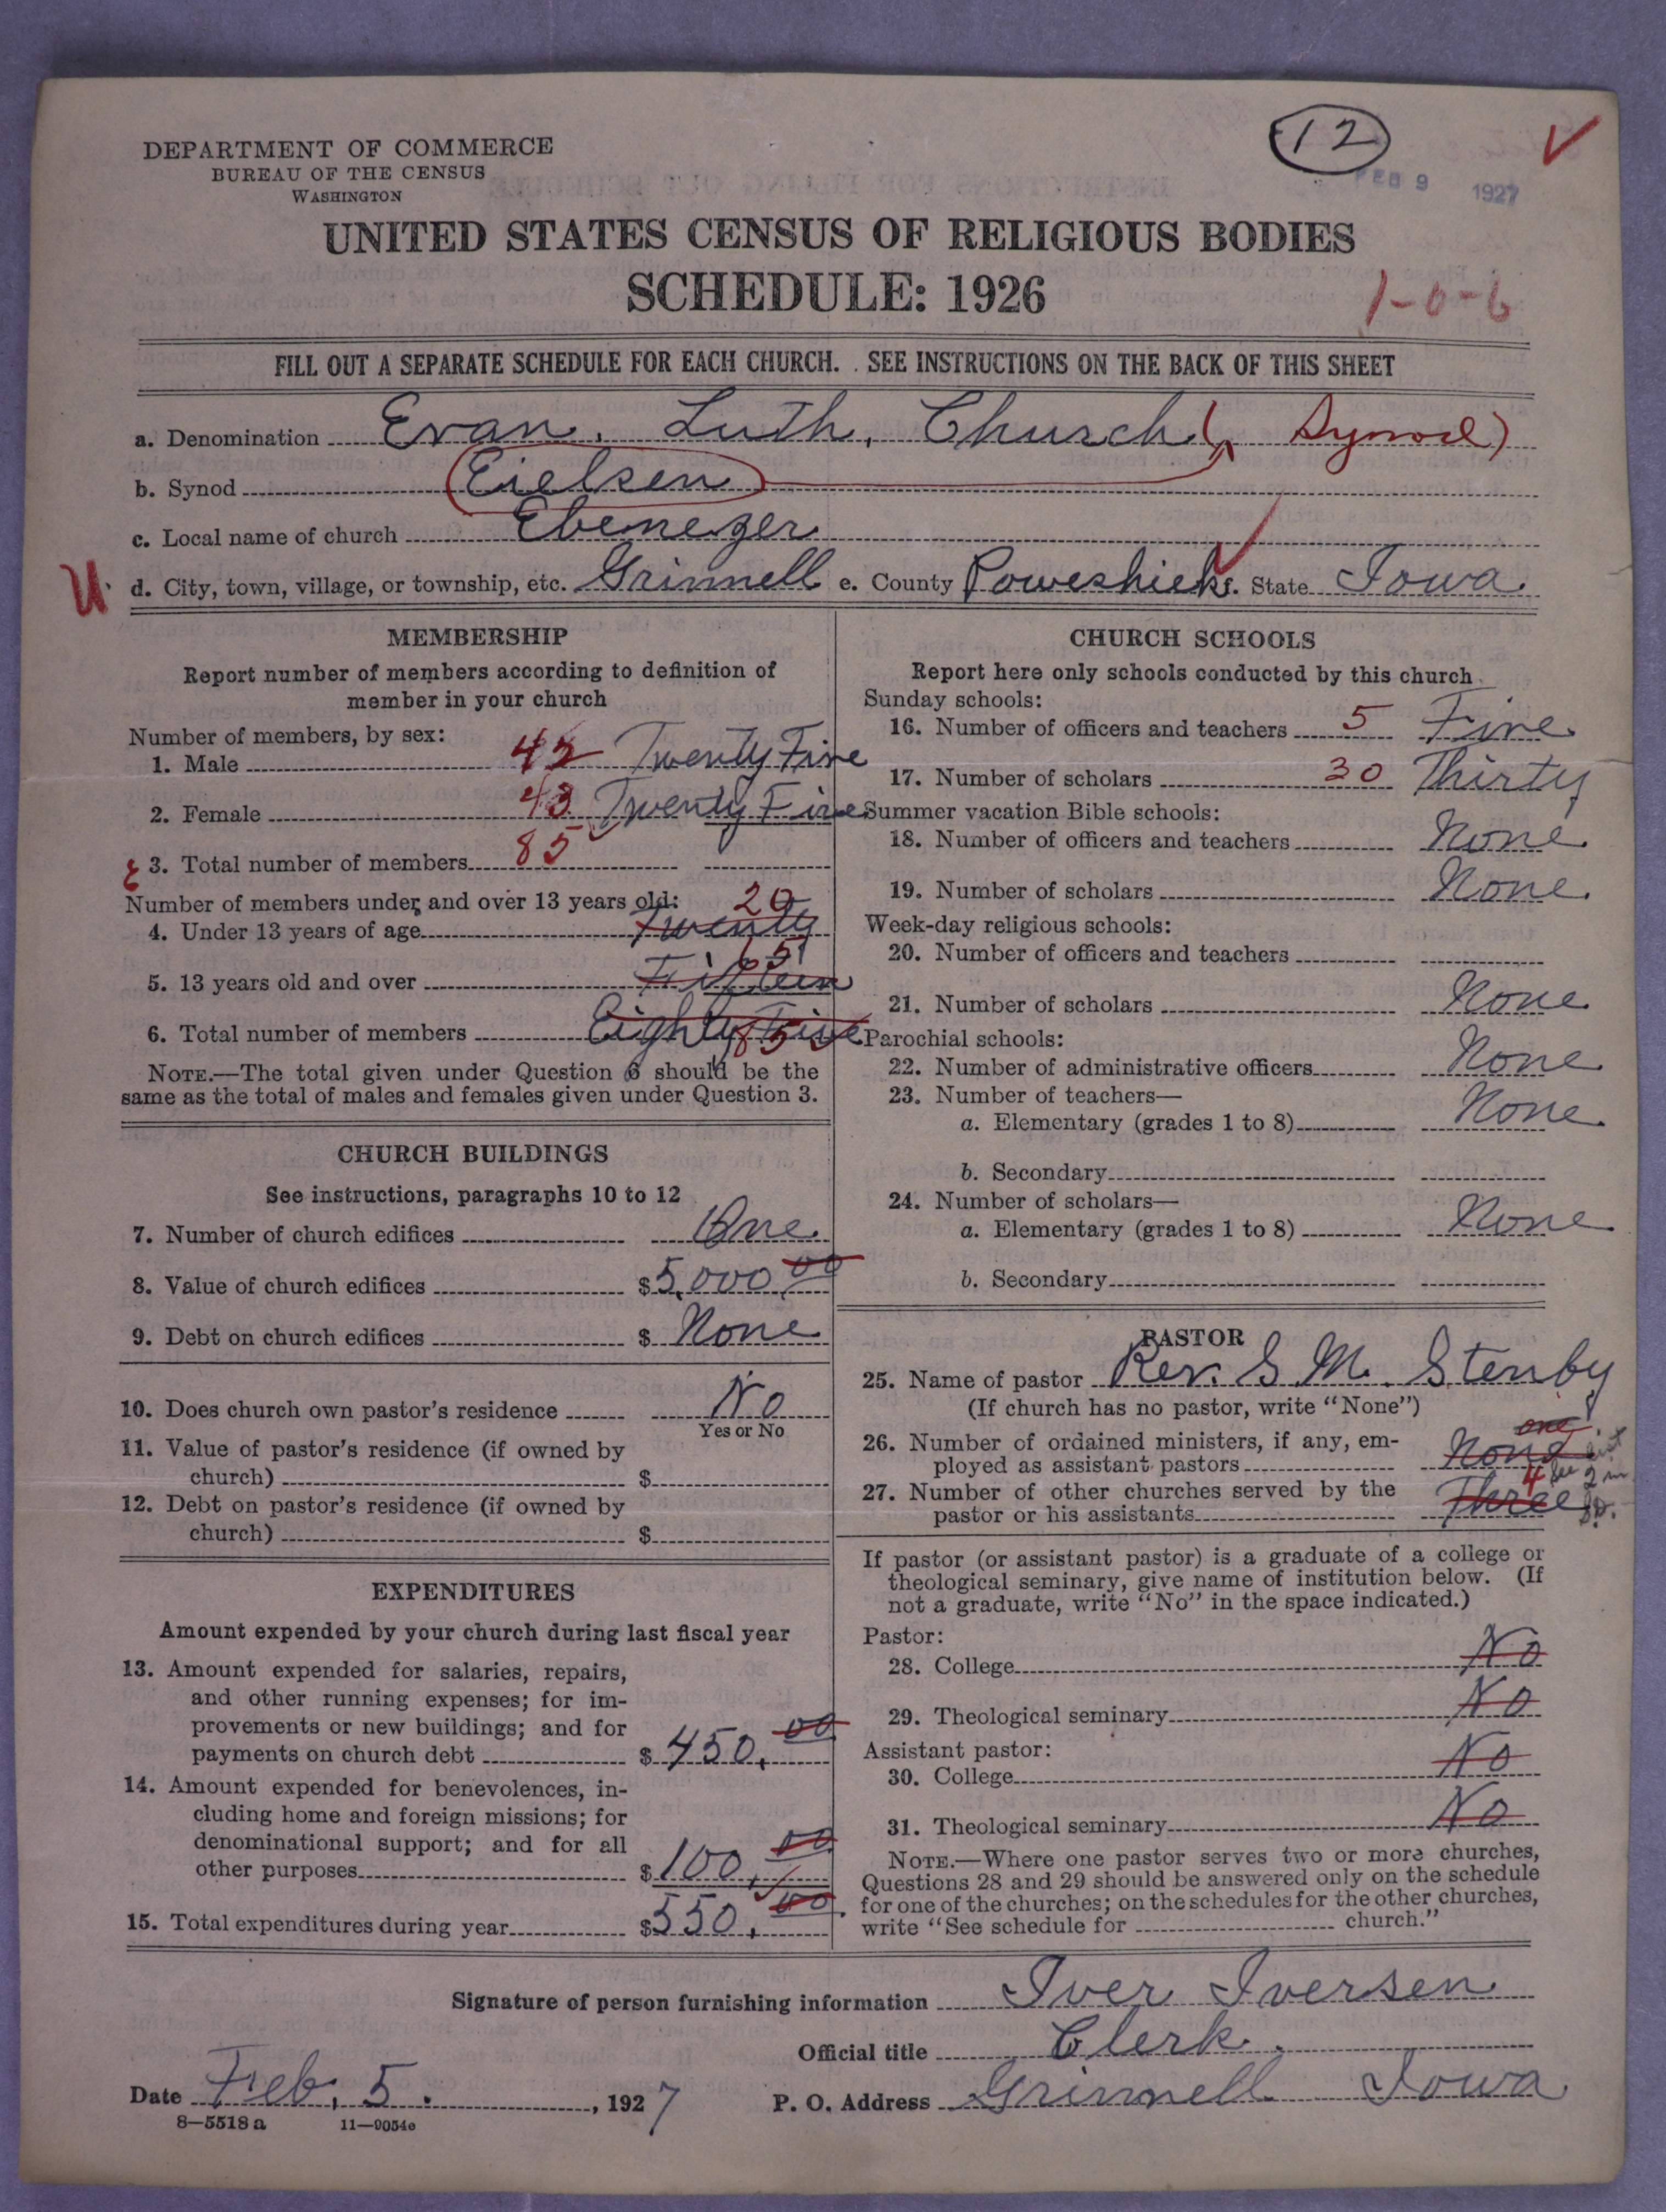 DEPARTMENT OF COMMERCE
BUREAU OF THE CENSUS
WASHINGTON
12
FEB 9 1927
UNITED STATES CENSUS OF RELIGIOUS BODIES
SCHEDULE: 1926
1-0-6
FILL OUT A SEPARATE SCHEDULE FOR EACH CHURCH. SEE INSTRUCTIONS ON THE BACK OF THIS SHEET
a. Denomination Evan. Luth. Church ( Synod)
b. Synod Eielsen
c. Local name of church Ebenezer
U d. City, town, village, or township, etc. Grinnell e. County Poweshiek f. State Iowa.
MEMBERSHIP
Report number of members according to definition of
member in your church
Number of members, by sex:
1. Male 42 Twenty Five
2. Female 43 Twenty Five
3. Total number of members 85
Number of members under and over 13 years old:
4. Under 13 years of age Twenty 20
5. 13 years old and over 65
6. Total number of members Eighty Five 85
NOTE.—The total given under Question 6 should be the
same as the total of males and females given under Question 3.
CHURCH BUILDINGS
See instructions, paragraphs 10 to 12
7. Number of church edifices One
8. Value of church edifices $5,000.00
9. Debt on church edifices $ None
10. Does church own pastor's residence No
Yes or No
11. Value of pastor's residence (if owned by
church) $
12. Debt on pastor's residence (if owned by
church) $
EXPENDITURES
Amount expended by your church during last fiscal year
13. Amount expended for salaries, repairs,
and other running expenses; for im-
provements or new buildings; and for
payments on church debt $ 450.00
14. Amount expended for benevolences, in-
cluding home and foreign missions; for
denominational support; and for all
other purposes $ 100.00
15. Total expenditures during year $550.00
CHURCH SCHOOLS
Report here only schools conducted by this church
Sunday schools:
16. Number of officers and teachers 5 Five
17. Number of scholars 30 Thirty
Summer vacation Bible schools:
18. Number of officers and teachers None
19. Number of scholars None
Week-day religious schools:
20. Number of officers and teachers
21. Number of scholars None
Parochial schools:
22. Number of administrative officers None
23. Number of teachers—
a. Elementary (grades 1 to 8) None
b. Secondary
24. Number of scholars—
a. Elementary (grades 1 to 8) None
b. Secondary
PASTOR
25. Name of pastor Rev. S M. Stenby
(If church has no pastor, write "None")
one
26. Number of ordained ministers, if any, em-
ployed as assistant pastors None
27. Number of other churches served by the
pastor or his assistants Three 4
If pastor (or assistant pastor) is a graduate of a college or
theological seminary, give name of institution below. (If
not a graduate, write "No" in the space indicated.)
Pastor:
28. College No
29. Theological seminary No
Assistant pastor:
30. College No
31. Theological seminary No
NOTE.—Where one pastor serves two or more churches,
Questions 28 and 29 should be answered only on the schedule
for one of the churches; on the schedules for the other churches,
write "See schedule for church."
Signature of person furnishing information Iver Iversen
Official title Clerk.
Date Feb. 5. , 1927 P. O. Address Grinnell Iowa
8—5518 a 11—9054c